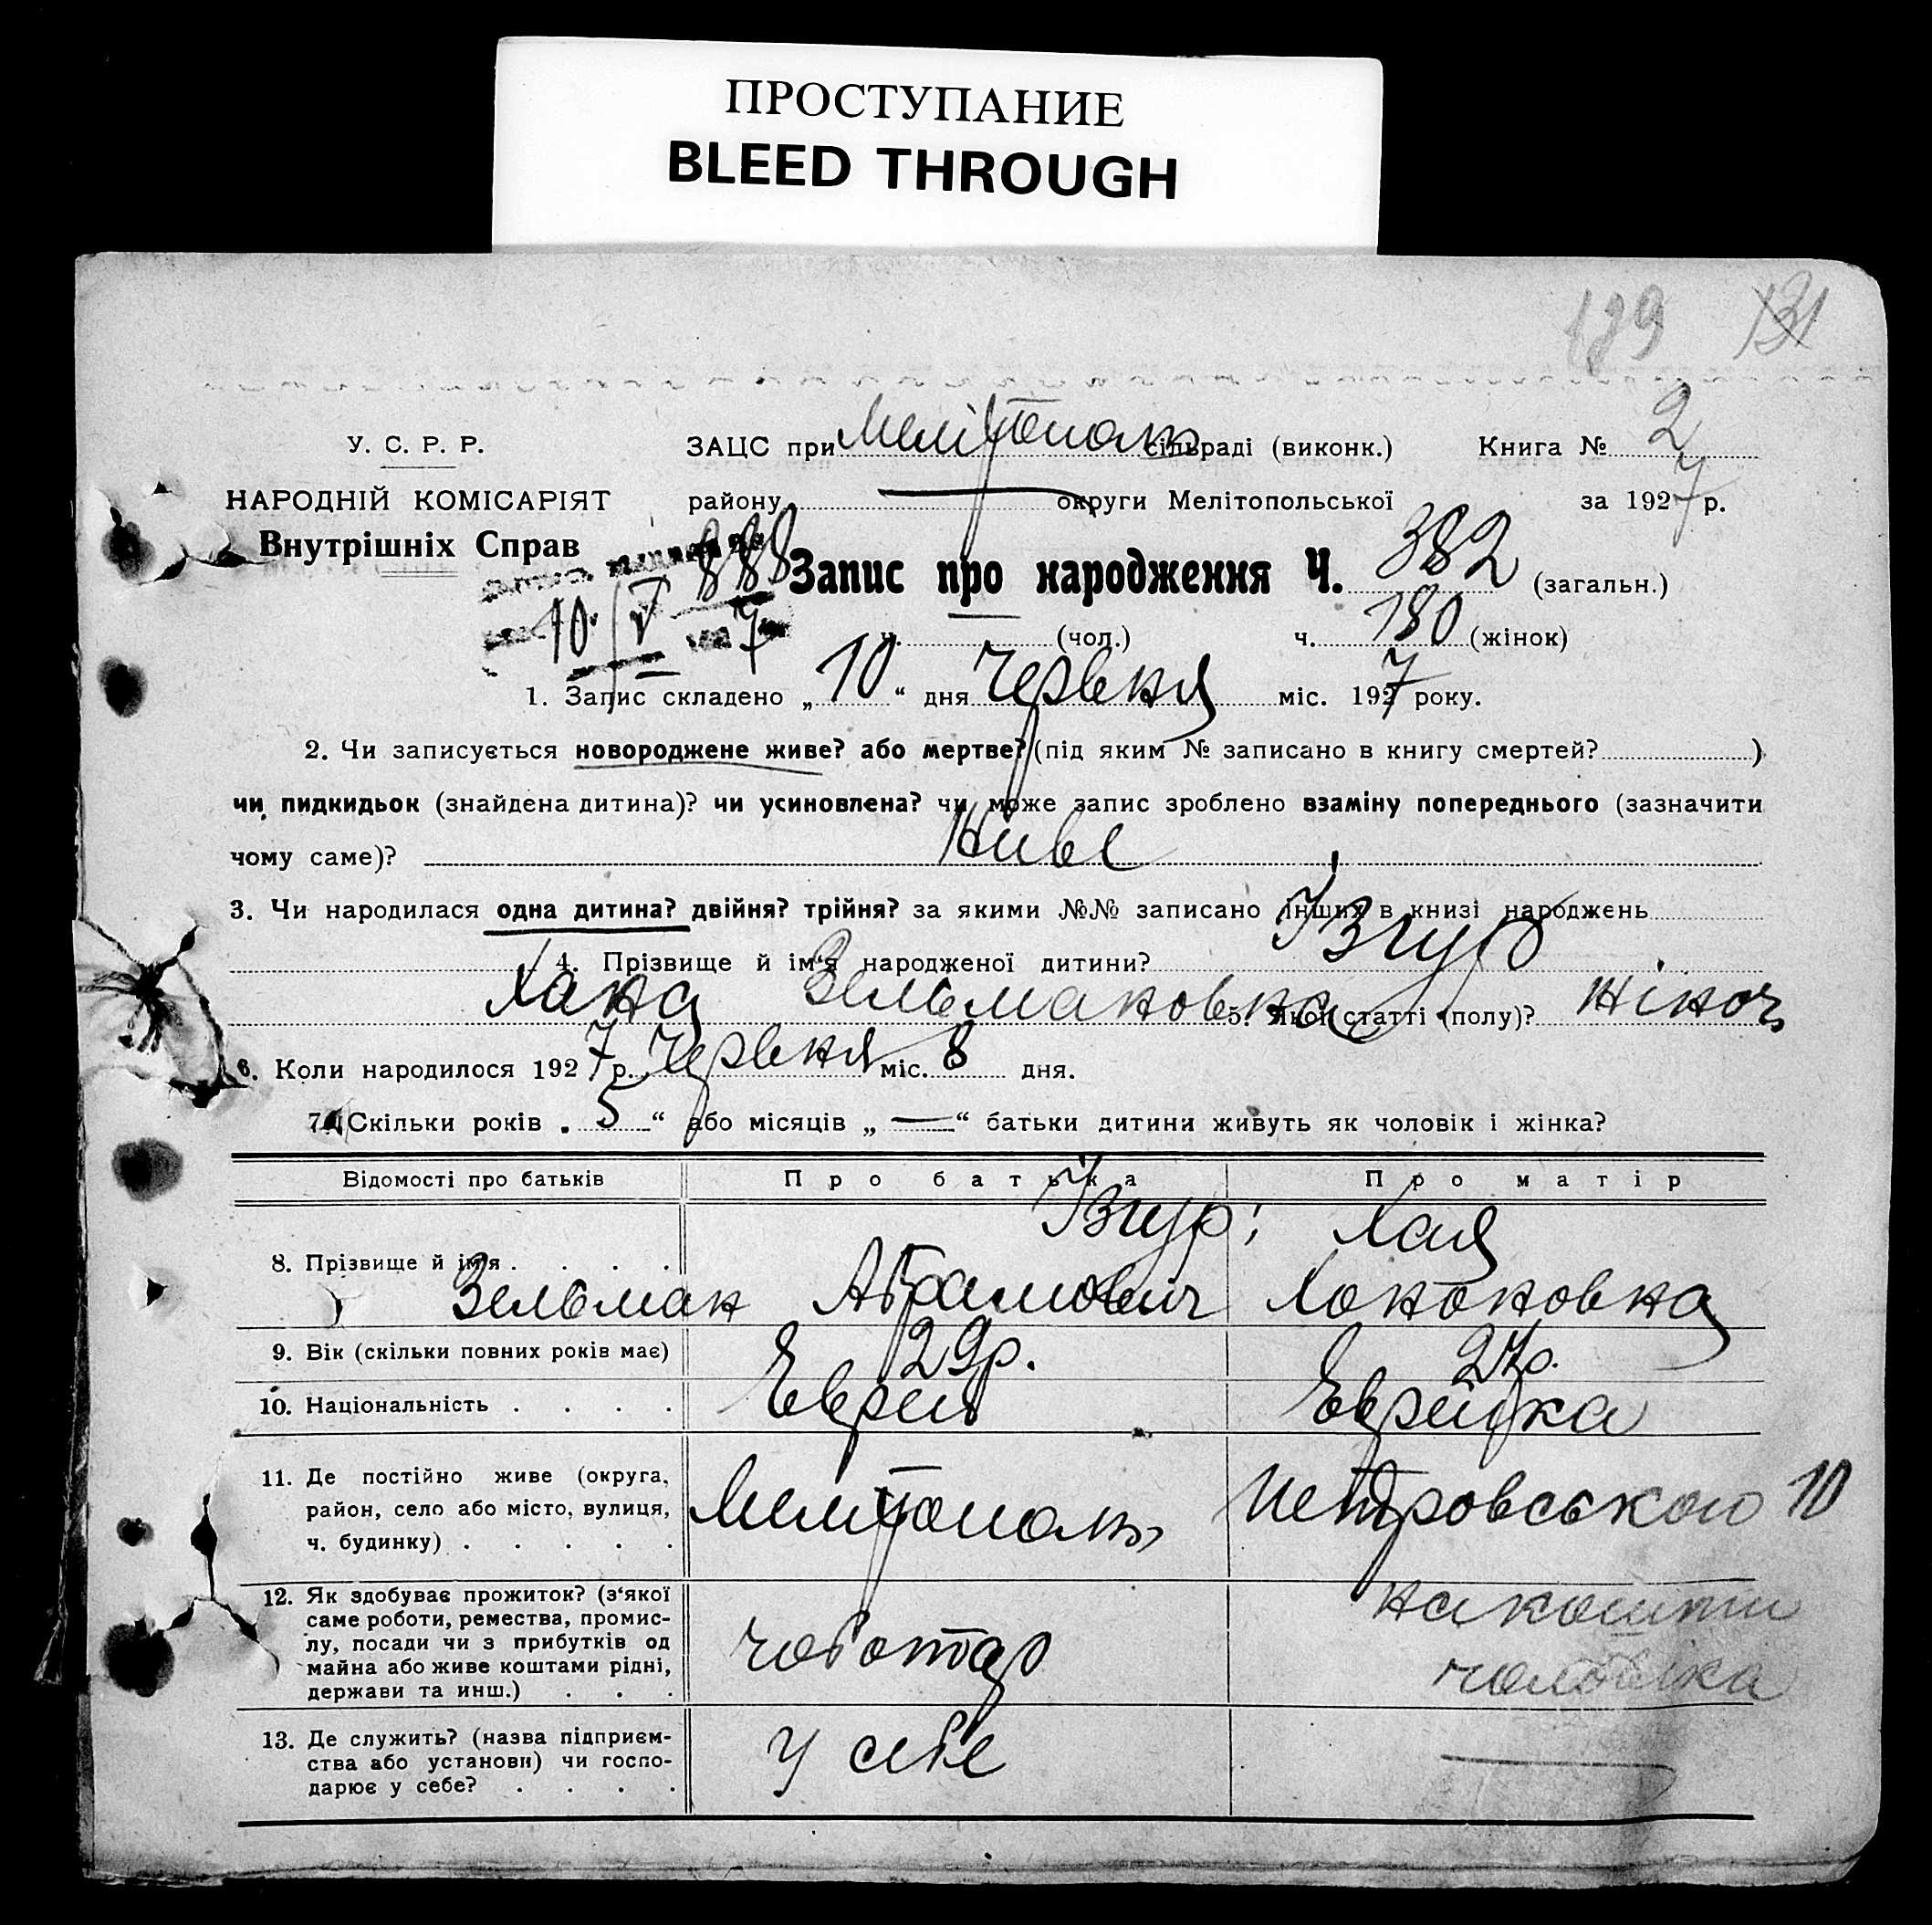 ПРОСТУПАНИЕ
BLEED THROUGH
189 131
У. С. Р. Р.
ЗАЦС при Мелітополь сільраді (виконк.) Книга № 2
НАРОДНІЙ КОМІСАРІЯТ
району — округи Мелітопольської за 1927 р.
Внутрішніх Справ
888
Запис про народження Ч. 382 (загальн.)
10/V 7
ч. (чол.) ч. 180 (жінок)
1. Запис складено „10“ дня червня міс. 1927 року.
2. Чи записується новороджене живе? або мертве? (під яким № записано в книгу смертей? )
чи пидкидьок (знайдена дитина)? чи усиновлена? чи може запис зроблено взаміну попереднього (зазначити
чому саме)? Живе
3. Чи народилася одна дитина? двійня? трійня? за якими №№ записано інших в книзі народжень
4. Прізвище й ім'я народженої дитини? Ізгур
Хана Зельмановна 5. Якої статті (полу)? жіноч
6. Коли народилося 1927 р. червня міс. 8 дня.
7. Скільки років „5“ або місяців „—“ батьки дитини живуть як чоловік і жінка?
Відомості про батьків Про батька Про матір
Ізгур; Хая
8. Прізвище й ім'я . . . .
Зельман Абрамович Хононовна
9. Вік (скільки повних років має) 29р. 27р.
10. Національність . . . . Еврей Еврейка
11. Де постійно живе (округа,
район, село або місто, вулиця,
ч. будинку) . . . . .
Мелітополь, Петровського 10
12. Як здобуває прожиток? (з'якої
саме роботи, ремества, промис-
лу, посади чи з прибутків од
майна або живе коштами рідні,
держави та инш.) . . .
чоботар
на кошти
чоловіка
13. Де служить? (назва підприєм-
ства або установи) чи госпо-
дарює у себе? . . . .
у себе —